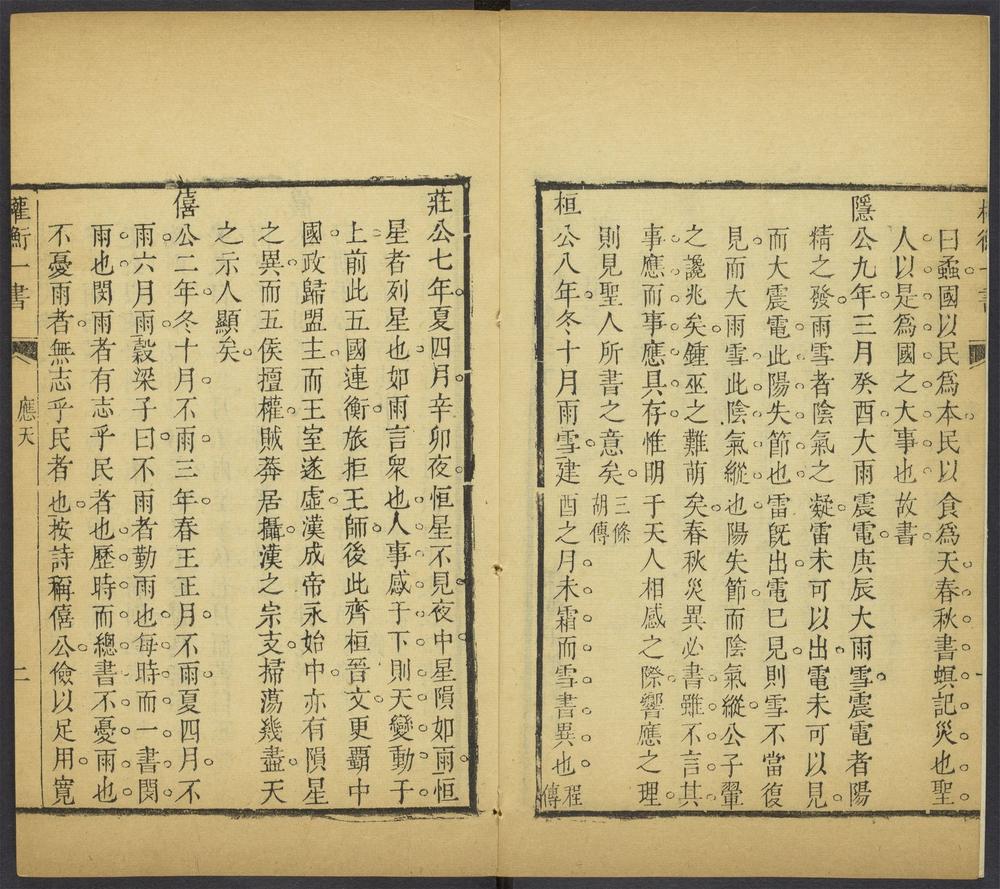 曰蟊國以民爲本民以食爲天春秋書螟記災也聖
人以是爲國之大事也故書
隱公九年三月癸酉大雨震電庚辰大雨雪震電者陽
精之發雨雪者陰氣之凝雷未可以出電未可以見
而大震電此陽失節也雷旣出電已見則雪不當復
見而大雨雪此陰氣縱也陽失節而陰氣縱公子翬
之讒兆矣鍾巫之難萌矣春秋災異必書雖不言其
事應而事應具存惟明于天人相感之際響應之理
則見聖人所書之意矣三條胡傳
桓公八年冬十月雨雪建酉之月未霜而雪書異也程傳
莊公七年夏四月辛卯夜恒星不見夜中星隕如雨恒
星者列星也如雨言衆也人事感于下則天變動于
上前此五國連衡旅拒王師後此齊桓晉文更覇中
國政歸盟主而王室遂虛漢成帝永始中亦有隕星
之異而五侯擅權賊莽居攝漢之宗支掃蕩幾盡天
之示人顯矣
僖公二年冬十月不雨三年春王正月不雨夏四月不
雨六月雨穀梁子曰不雨者勤雨也每時而一書閔
雨也閔雨者有志乎民者也歷時而總書不憂雨也
不憂雨者無志乎民者也按詩稱僖公儉以足用寬
權衡一書
應天
二